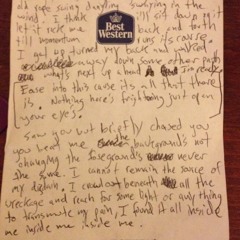 old rope swing dangling swaying in the
wind. I think I'll sit down on it
let it rock me back and forth
till momentum runs its course.
Best
Western
I get up turned my back and walked
away down some other path
what's next up ahead I'm ready
Ease into this cause its all that there
is. Nothing here's frightening just open
your eyes.
Saw you but briefly chased you
you beat me backgrounds not
changing the foregrounds never
the same. I cannot remain the source of
my torture. I crawl out beneath all the
wreckage and reach for some light or any thing
to transmute my pain, I found it all inside
me inside me inside me.